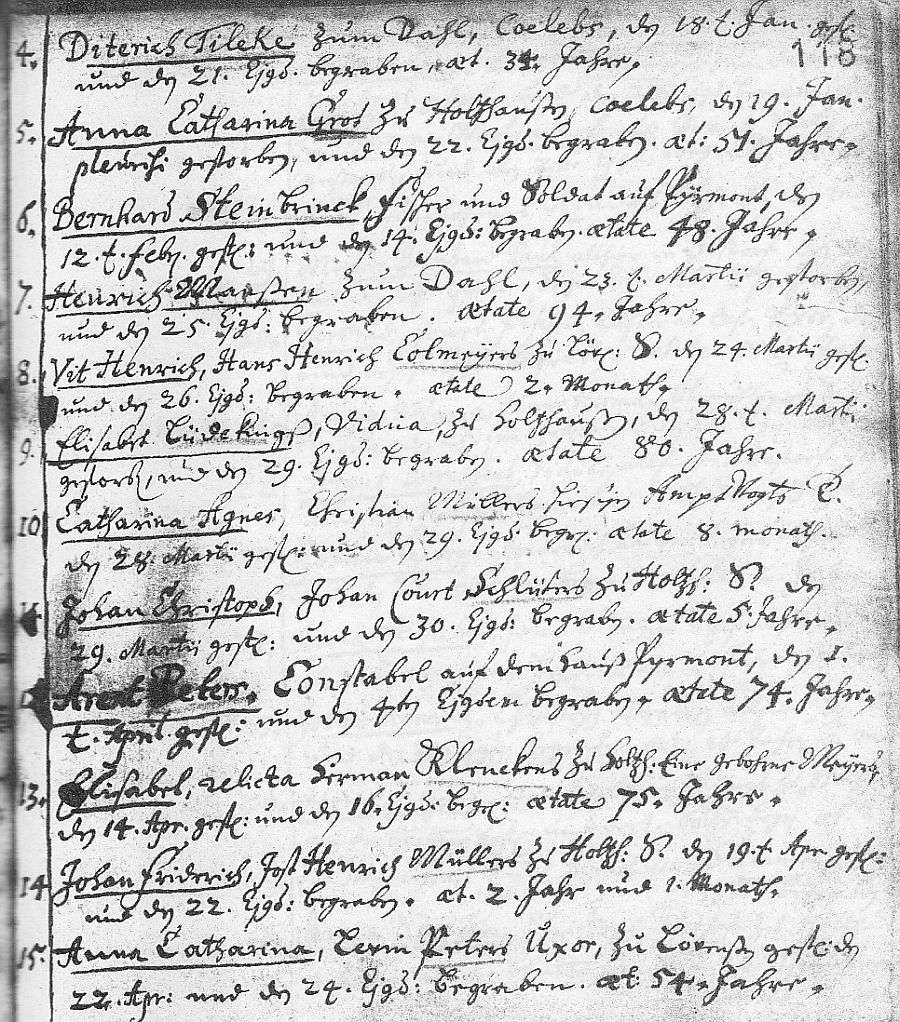 118
4. Diterich Tileke zum Dahl, Coelebs, den 18.t. Jan. gest:
und den 21. Ejsd. begraben, æt. 34. Jahre.
5. Anna Catharina Grot zu Holtzhausen, Coelebs, den 19. Jan.
pleurisi gestorben, und den 22. Ejsd. begraben. æt: 51. Jahre.
6. Bernhard Steinbrinck, Fischer und Soldat auf Pyrmont, den
12.t. Febr. gest: und den 14. Ejsd: begraben. ætate 48. Jahre.
7. Henrich Maussen zum Dahl, den 23.t. Martii gestorben,
und den 25. Ejsd: begraben. ætate 94. Jahre.
8. Vit Henrich, Hans Henrich Colmeyers zu Lör: S. den 24. Martii gest:
und den 26. Ejsd: begraben. ætate 2. Monath.
9. Elisabet Lüdekings, Vidua, zu Holtzhausen, den 28.t. Martii
gestorb, und den 29. Ejsd: begraben. ætate 80. Jahre.
10. Catharina Agnes, Christian Müllers hiesigen Ampt Vogts T.
den 28. Martii gest: und den 29. Ejsd: begr: ætate 8. monath.
11. Johan Christoph, Johan Court Schlüters zu Holtzh: S. den
29. Martii gest: und den 30. Ejsd: begraben. ætate 5. Jahre.
12. Arent Peters. Constabel auf dem Hauß Pyrmont, den 1.
t. April gest: und den 4ten Ejsdem begraben. ætate 74. Jahre.
13. Elisabet, relicta Herman Klenckens zu Holtzh: Eine gebohrne Meyers,
den 14. Apr. gest: und den 16. Ejsd: begr: ætate 75. Jahre.
14. Johan Friderich, Jost Henrich Müllers zu Holtzh: S. den 19.t Apr gest:
und den 22. Ejsd: begraben. æt. 2. Jahr und 1. Monath.
15. Anna Catharina, Levin Peters Uxor, zu Lövensen gest: den
22. Apr: und den 24. Ejsd: begraben. æt: 54. Jahre.